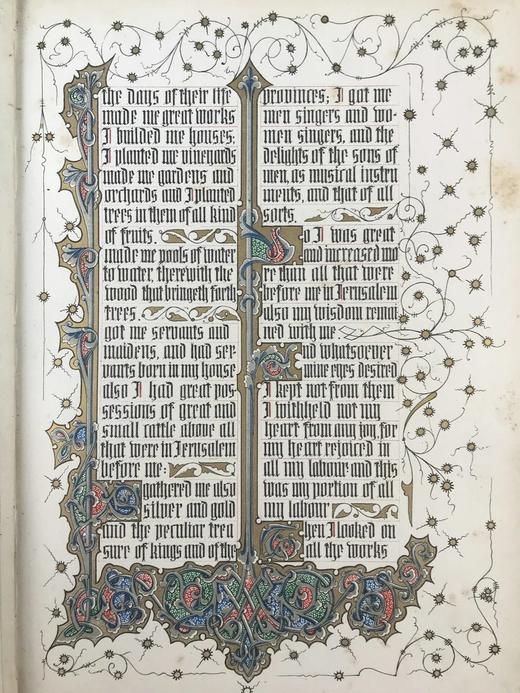 the days of their life
made me great works
I builded me houses:
I planted me vineyards
made me gardens and
orchards and I planted
trees in them of all kind
of fruits.
made me pools of water
to water, therewith the
wood that bringeth forth
trees.
got me servants and
maidens, and had ser-
vants born in my house
also I had great pos-
sessions of great and
small cattle above all
that were in Jerusalem
before me:
I gathered me also
silver and gold
and the peculiar trea
sure of kings and of the
provinces; I gat me
men singers and wo-
men singers, and the
delights of the sons of
men, as musical instru
ments, and that of all
sorts.
So I was great
and increased mo
re than all that were
before me in Jerusalem
also my wisdom remai
ned with me
And whatsoever
mine eyes desired
I kept not from them
I withheld not my
heart from any joy, for
my heart rejoiced in
all my labour and this
was my portion of all
my labour
Then I looked on
all the works